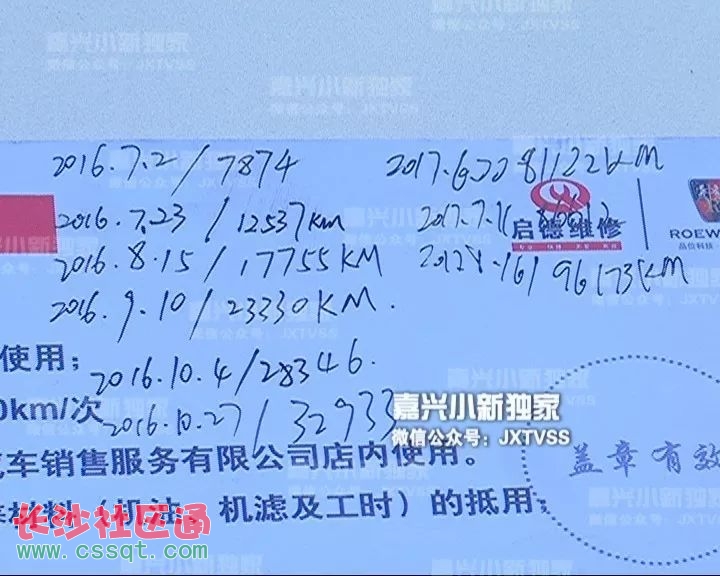 嘉兴小新独家
微信公众号：JXTVSS
2016.7.2/7874
2016.7.23/12537km
2016.8.15/17755KM
2016.9.10/23330KM.
2016.10.4/28346.
2016.10.27/32933
81122KM
96173KM
启德维修
ROEW
品位科技
使用；
0km/次
车销售服务有限公司店内使用。
材料（机油、机滤及工时）的抵用；
盖章有效
嘉兴小新独家
微信公众号：JXTVSS
长沙社区通
www.cssqt.com